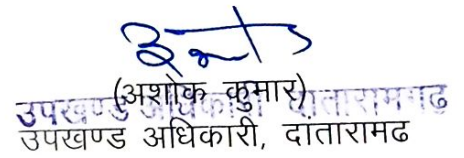 (अशोक कुमार)
उपखण्ड अधिकारी दांतारामगढ
उपखण्ड अधिकारी, दांतारामढ